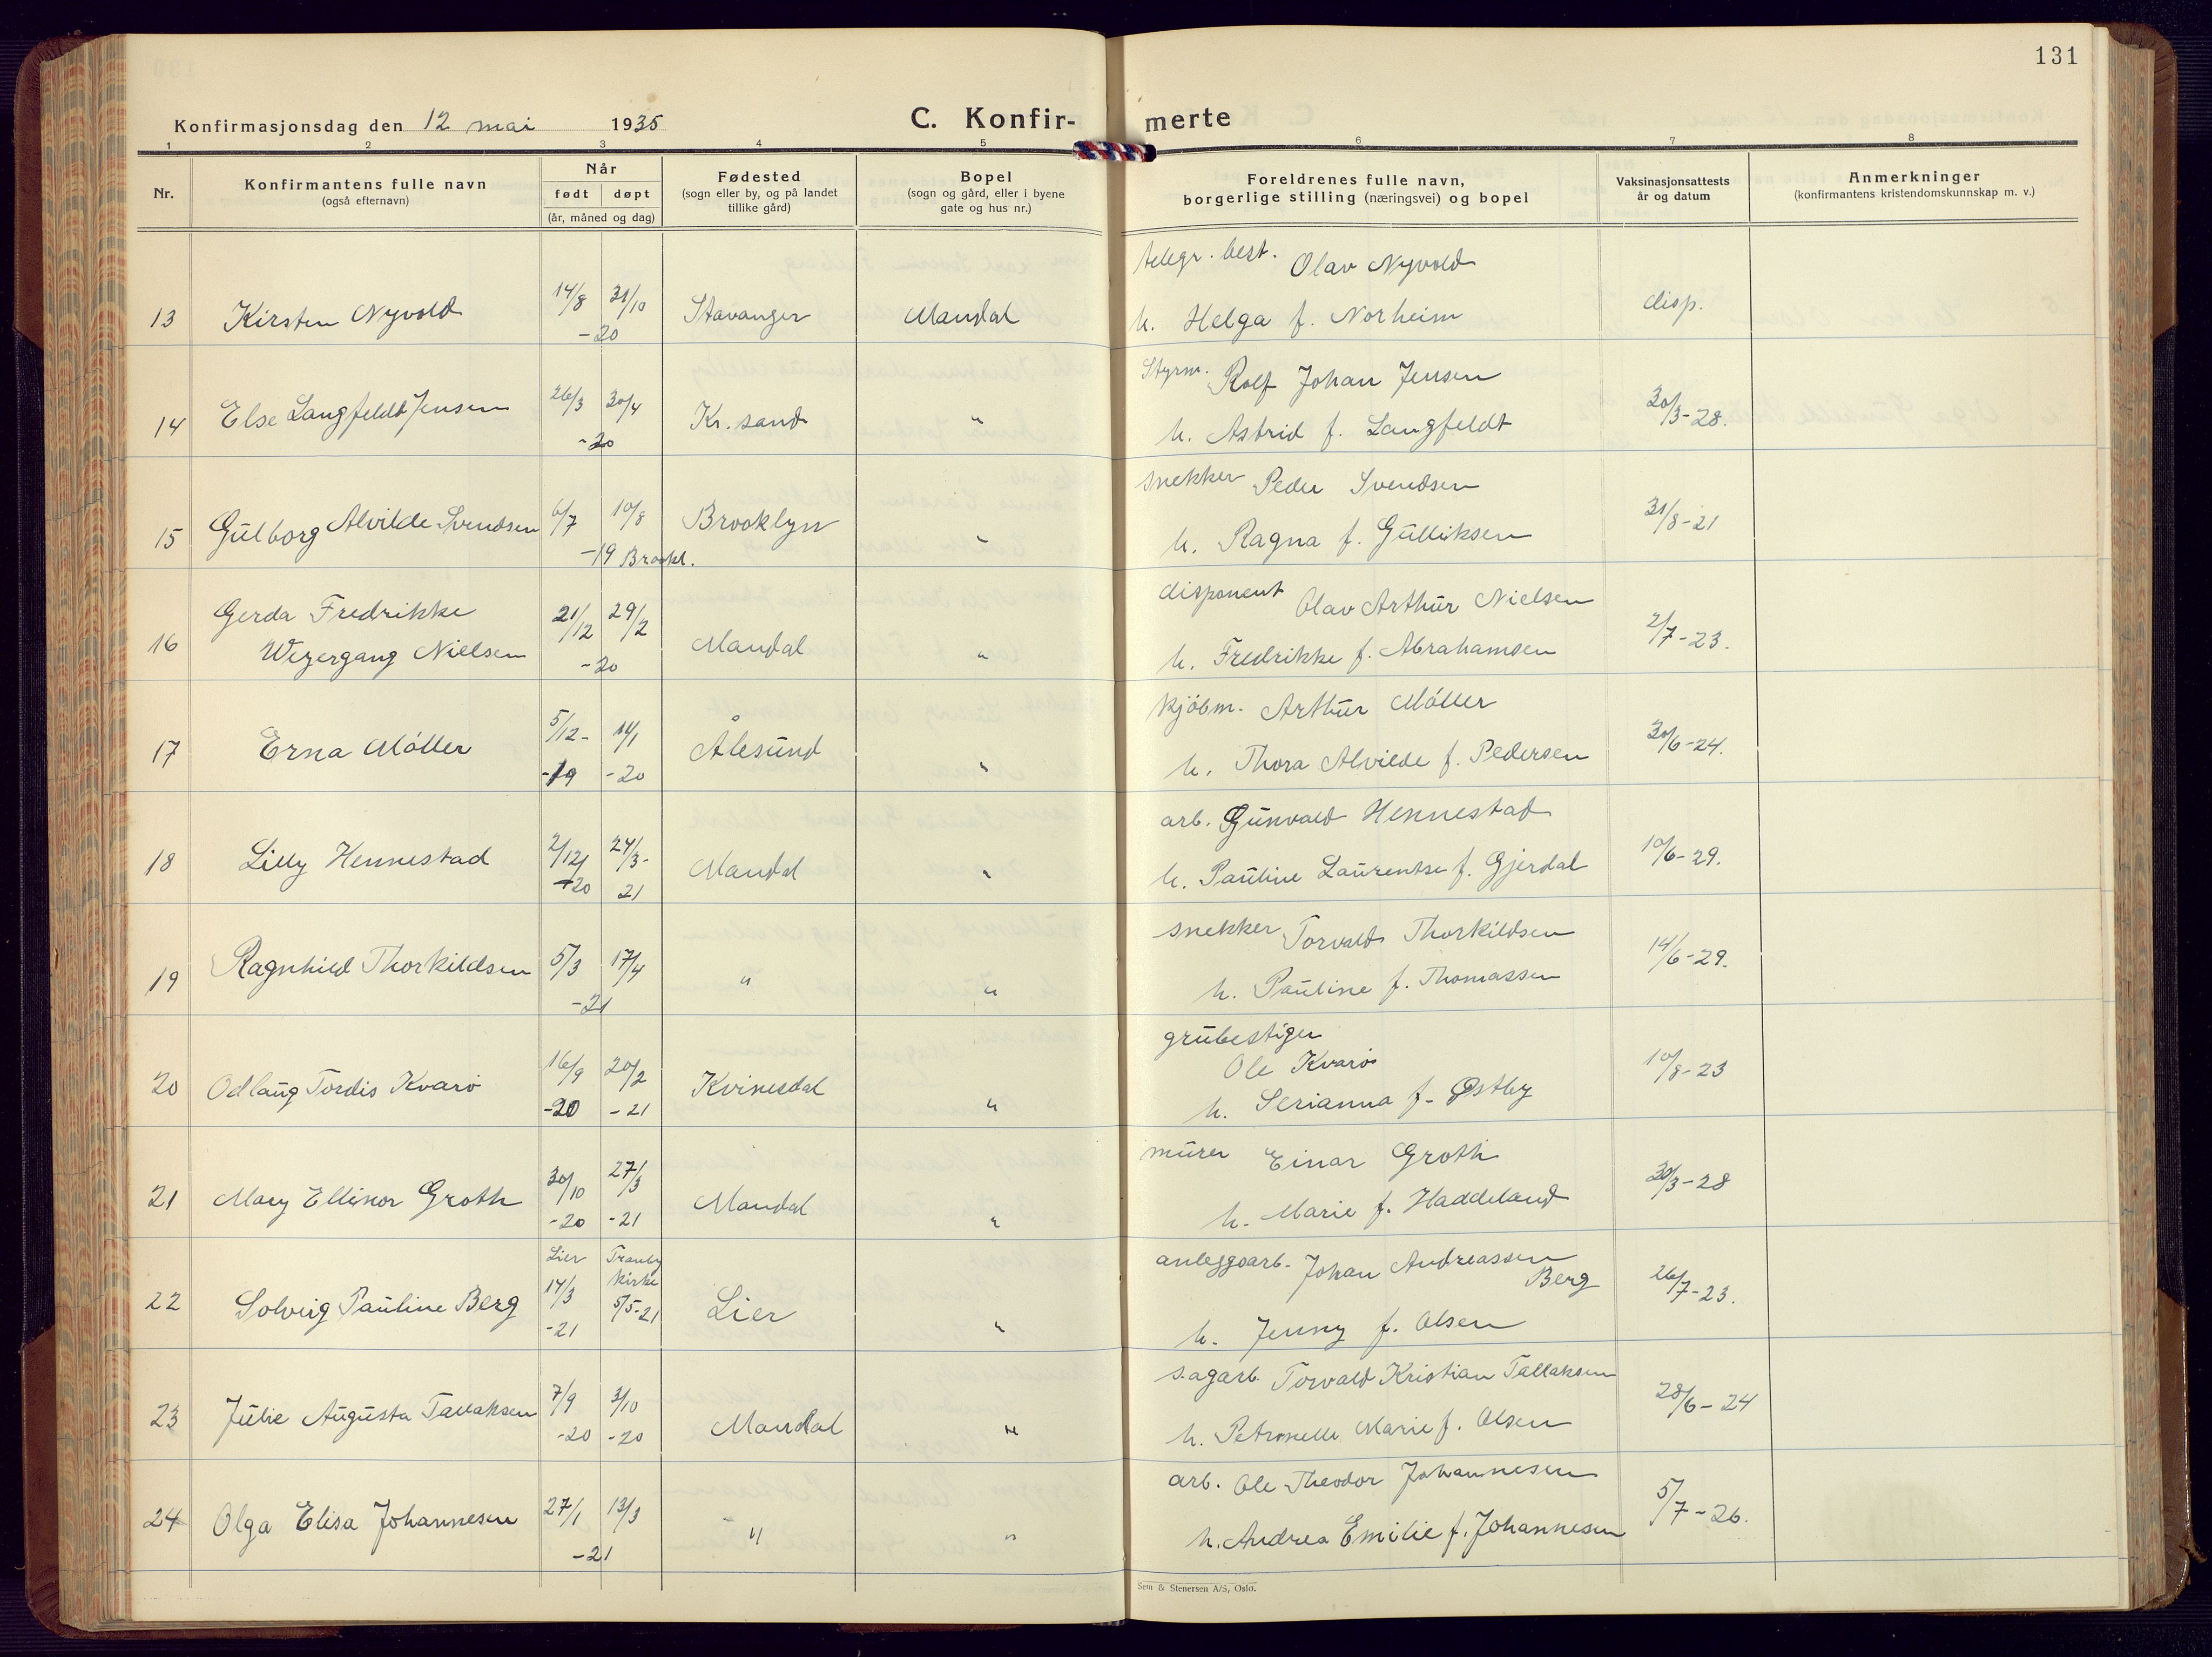 131
Konfirmasjonsdag den 12 mai 1935
C. Konfir- merte
1 2 3 4 5 6 7 8
Nr.
Konfirmantens fulle navn
(også efternavn)
Når
født døpt
(år, måned og dag)
Fødested
(sogn eller by, og på landet
tillike gård)
Bopel
(sogn og gård, eller i byene
gate og hus nr.)
Foreldrenes fulle navn,
borgerlige stilling (næringsvei) og bopel
Vaksinasjonsattests
år og datum
Anmerkninger
(konfirmantens kristendomskunnskap m. v.)
telegr. best. Olav Nyvold
13 Kirsten Nyvold 14/8 31/10 Stavanger Mandal h. Helga f. Norheim disp.
-20
Styrm. Rolf Johan Jensen
14 Else Langfeldt Jensen 26/3 30/4 Kr. sand " h. Astrid f. Langfeldt 30/3-28.
-20
snekker Peder Svendsen
15 Gulborg Alvilde Svendsen 6/7 10/8 Brooklyn " h. Ragna f. Gulliksen 31/8-21
-19 Brookl.
Gerda Fredrikke 21/12 29/2 disponent Olav Arthur Nielsen
16 Weyergang Nielsen -20 Mandal " h. Fredrikke f. Abrahamsen 2/7-23.
kjöbm. Arthur Möller
17 Erna Möller 5/12- 11/1 Ålesund " h. Thora Alvilde f. Pedersen 30/6-24.
-19 -20
arb. Gunvald Hennestad
18 Lilly Hennestad 2/12 24/3- Mandal " h. Pauline Laurentse f. Gjerdal 10/6-29.
-20 21
snekker Torvald Thorkildsen
19 Ragnhild Thorkildsen 5/3 17/4 " " h. Pauline f. Thomassen 14/6-29.
-21
grubestiger
Ole Kvarø
20 Odlaug Tordis Kvarø 16/9 20/2 Kvinesdal " h. Serianna f. Østby 10/8-23
-20 -21
murer Einar Groth
21 Mary Ellinor Groth 30/10 27/3 Mandal " h. Marie f. Haddeland 30/3-28
-20 -21
Lier Tranby
kirke
anleggsarb. Johan Andreassen
Berg
22 Solveig Pauline Berg 14/3 5/5-21 Lier " h. Jenny f. Olsen 26/7-23.
-21
sagarb. Torvald Kristian Tallaksen
23 Julie Augusta Tallaksen 7/9 3/10 Mandal " h. Petronelle Marie f. Olsen 28/6-24
-20 -20
arb. Ole Theodor Johannesen
24 Olga Elisa Johannesen 27/1 13/3 " " h. Andrea Emilie f. Johannesen 5/7-26.
-21
Sem & Stenersen A/S, Oslo.